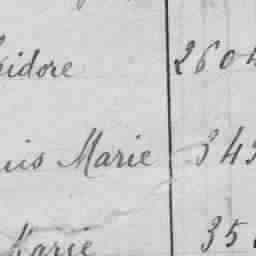 sidore 2604
uis Marie 343
Marie 35